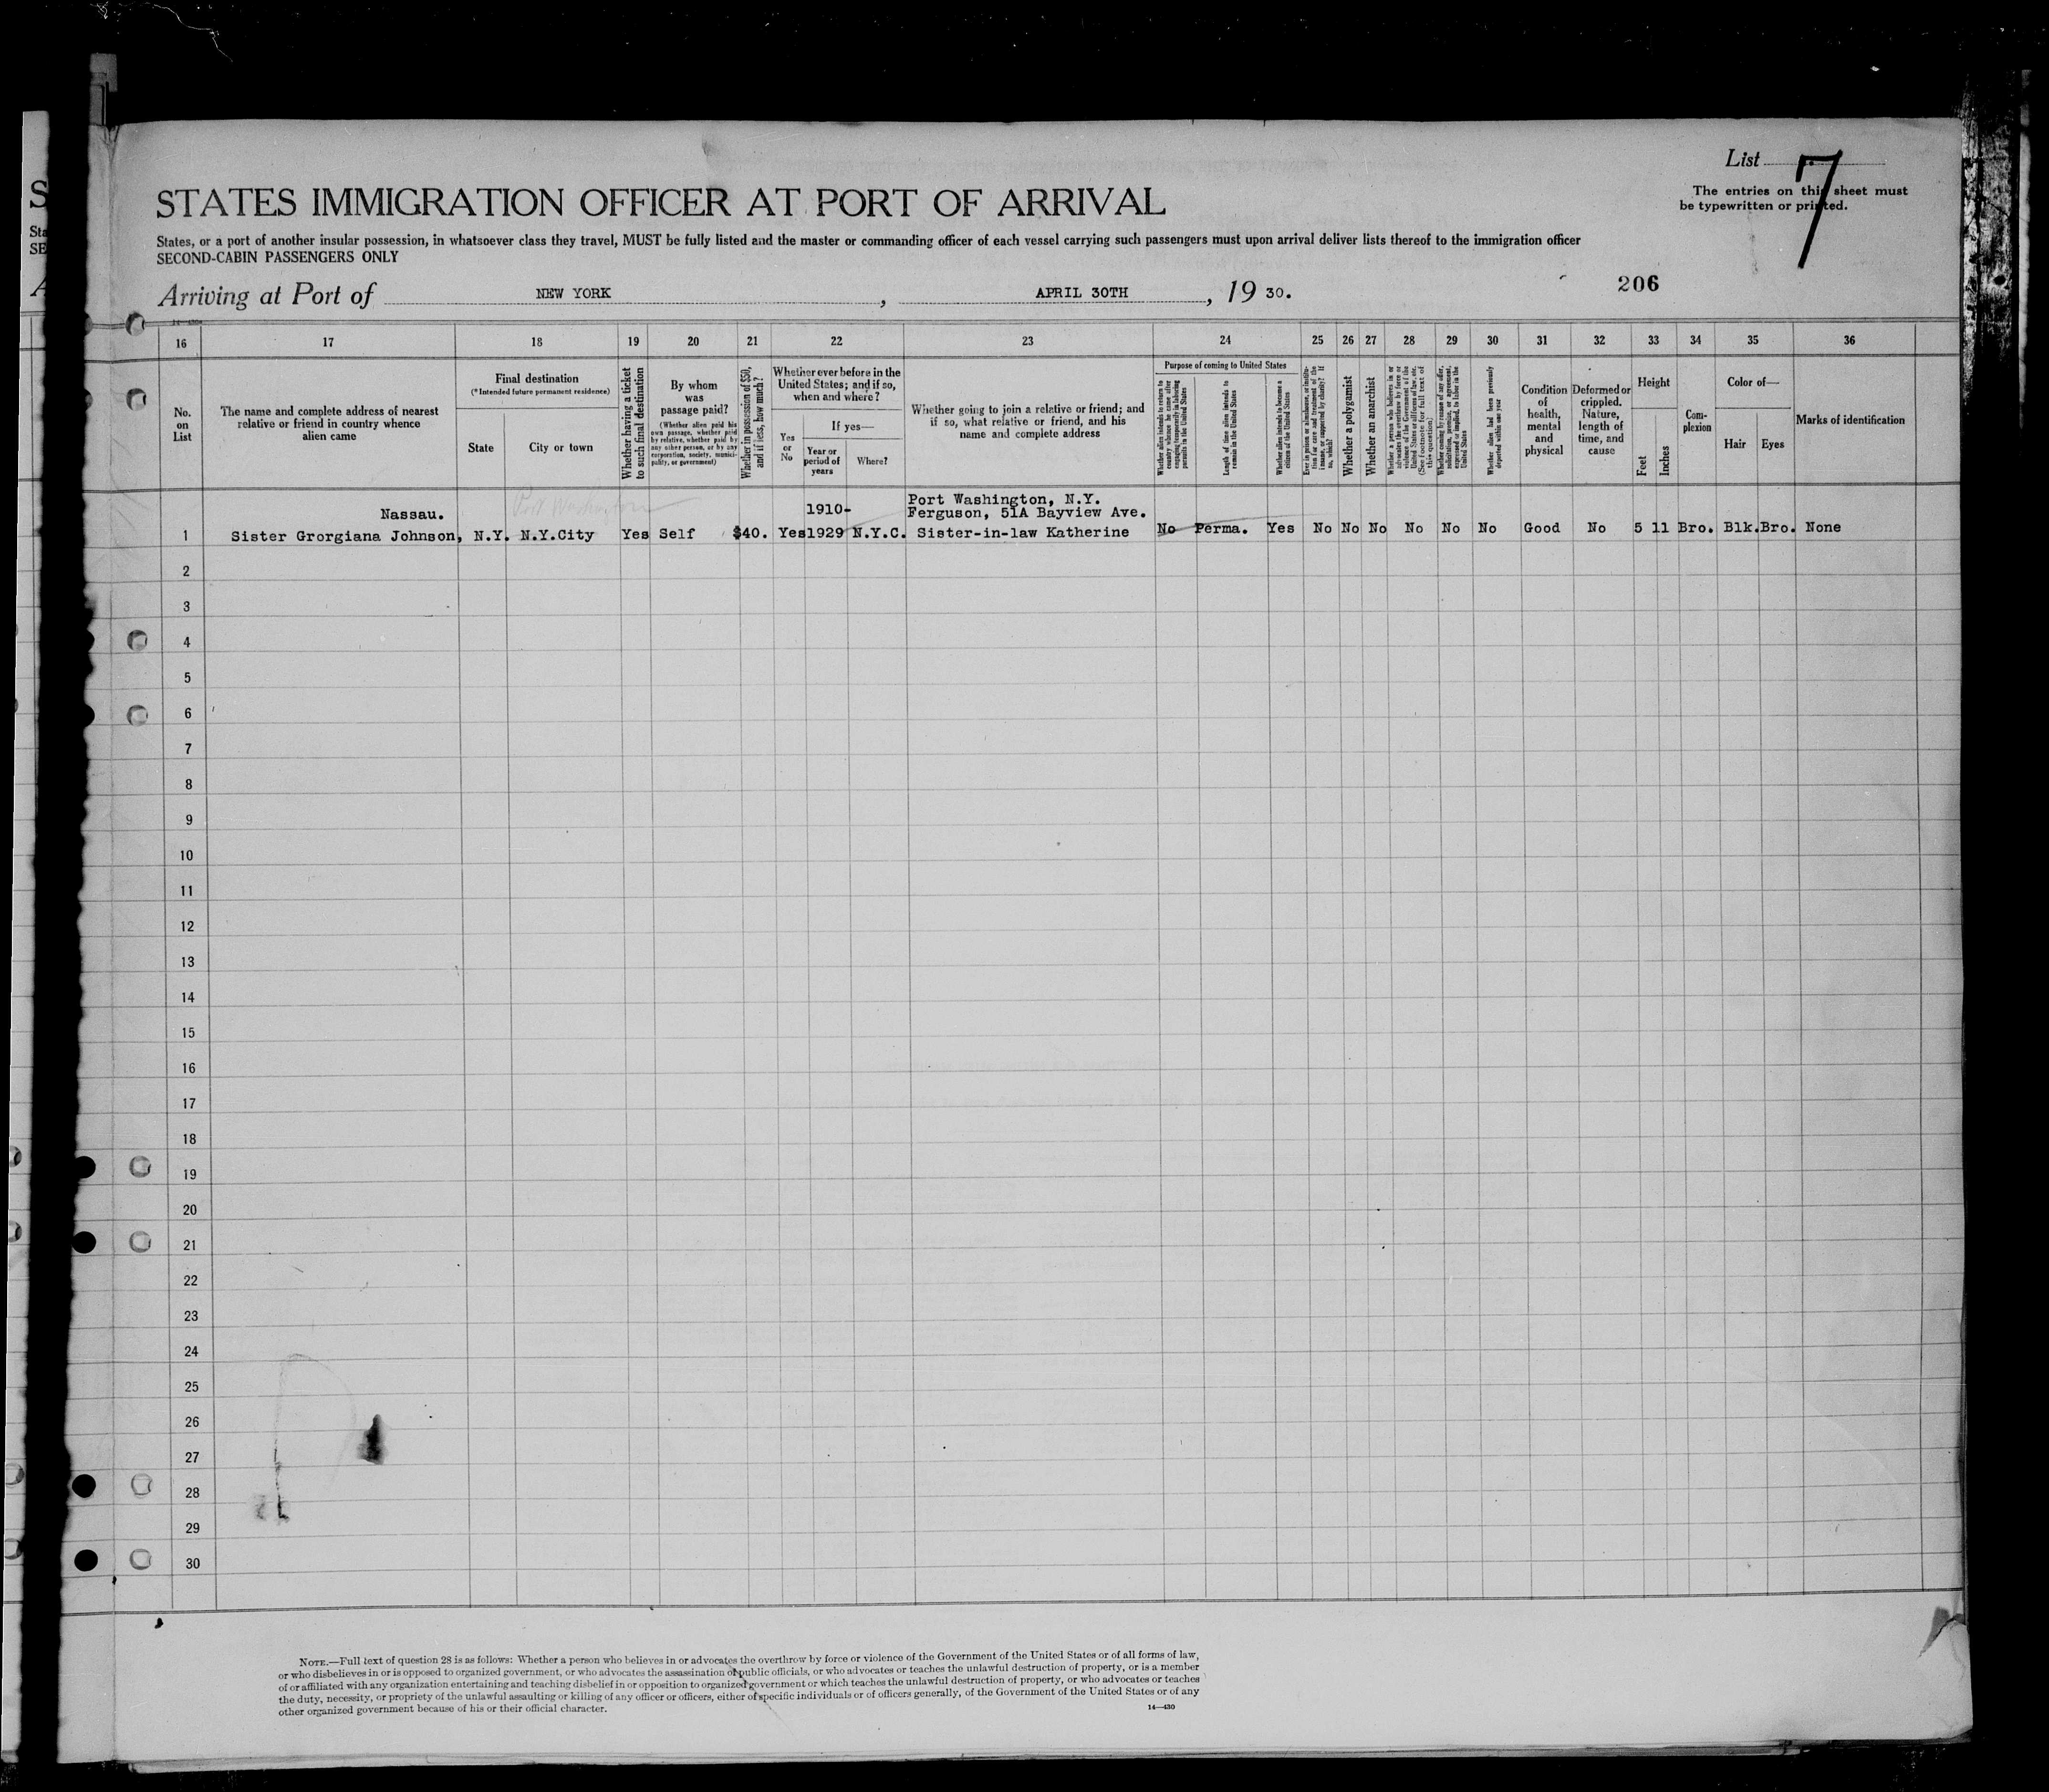 List 7
The entries on this sheet must
be typewritten or printed.
STATES IMMIGRATION OFFICER AT PORT OF ARRIVAL
States, or a port of another insular possession, in whatsoever class they travel, MUST be fully listed and the master or commanding officer of each vessel carrying such passengers must upon arrival deliver lists thereof to the immigration officer
SECOND-CABIN PASSENGERS ONLY
206
Arriving at Port of NEW YORK, APRIL 30TH, 19 30.
16 17 18 19 20 21 22 23 24 25 26 27 28 29 30 31 32 33 34 35 36
No.
on
List
The name and complete address of nearest
relative or friend in country whence
alien came
Final destination
(*Intended future permanent residence)
State
City or town
Whether having a ticket
to such final destination
By whom
was
passage paid?
(Whether alien paid his
own passage, whether paid
by relative, whether paid by
any other person, or by any
corporation, society, munici-
pality, or government)
Whether in possession of $50,
and if less, how much?
Whether ever before in the
United States; and if so,
when and where?
Yes
or
No
If yes—
Year or
period of
years
Where?
Whether going to join a relative or friend; and
if so, what relative or friend, and his
name and complete address
Purpose of coming to United States
Whether alien intends to return to
country whence he came after
engaging temporarily in laboring
pursuits in the United States
Length of time alien intends to
remain in the United States
Whether alien intends to become a
citizen of the United States
Ever in prison or almshouse, or institu-
tion for care and treatment of the
insane, or supported by charity? If
so, which?
Whether a polygamist
Whether an anarchist
Whether a person who believes in or
advocates the overthrow by force or
violence of the Government of the
United States or all forms of law, etc.
(See footnote for full text of
this question)
Whether coming by reason of any offer,
solicitation, promise, or agreement,
expressed or implied, to labor in the
United States
Whether alien had been previously
deported within one year
Condition
of
health,
mental
and
physical
Deformed or
crippled.
Nature,
length of
time, and
cause
Height
Feet
Inches
Com-
plexion
Color of—
Hair
Eyes
Marks of identification
Port Washington
Nassau. 1910- Port Washington, N.Y.
Ferguson, 51A Bayview Ave.
1 Sister Grorgiana Johnson, N.Y. N.Y.City Yes Self $40. Yes 1929 N.Y.C. Sister-in-law Katherine No Perma. Yes No No No No No No Good No 5 11 Bro. Blk. Bro. None
2
3
4
5
6
7
8
9
10
11
12
13
14
15
16
17
18
19
20
21
22
23
24
25
26
27
28
29
30
NOTE.—Full text of question 28 is as follows: Whether a person who believes in or advocates the overthrow by force or violence of the Government of the United States or of all forms of law,
or who disbelieves in or is opposed to organized government, or who advocates the assassination of public officials, or who advocates or teaches the unlawful destruction of property, or is a member
of or affiliated with any organization entertaining and teaching disbelief in or opposition to organized government or which teaches the unlawful destruction of property, or who advocates or teaches
the duty, necessity, or propriety of the unlawful assaulting or killing of any officer or officers, either of specific individuals or of officers generally, of the Government of the United States or of any
other organized government because of his or their official character.
14—430